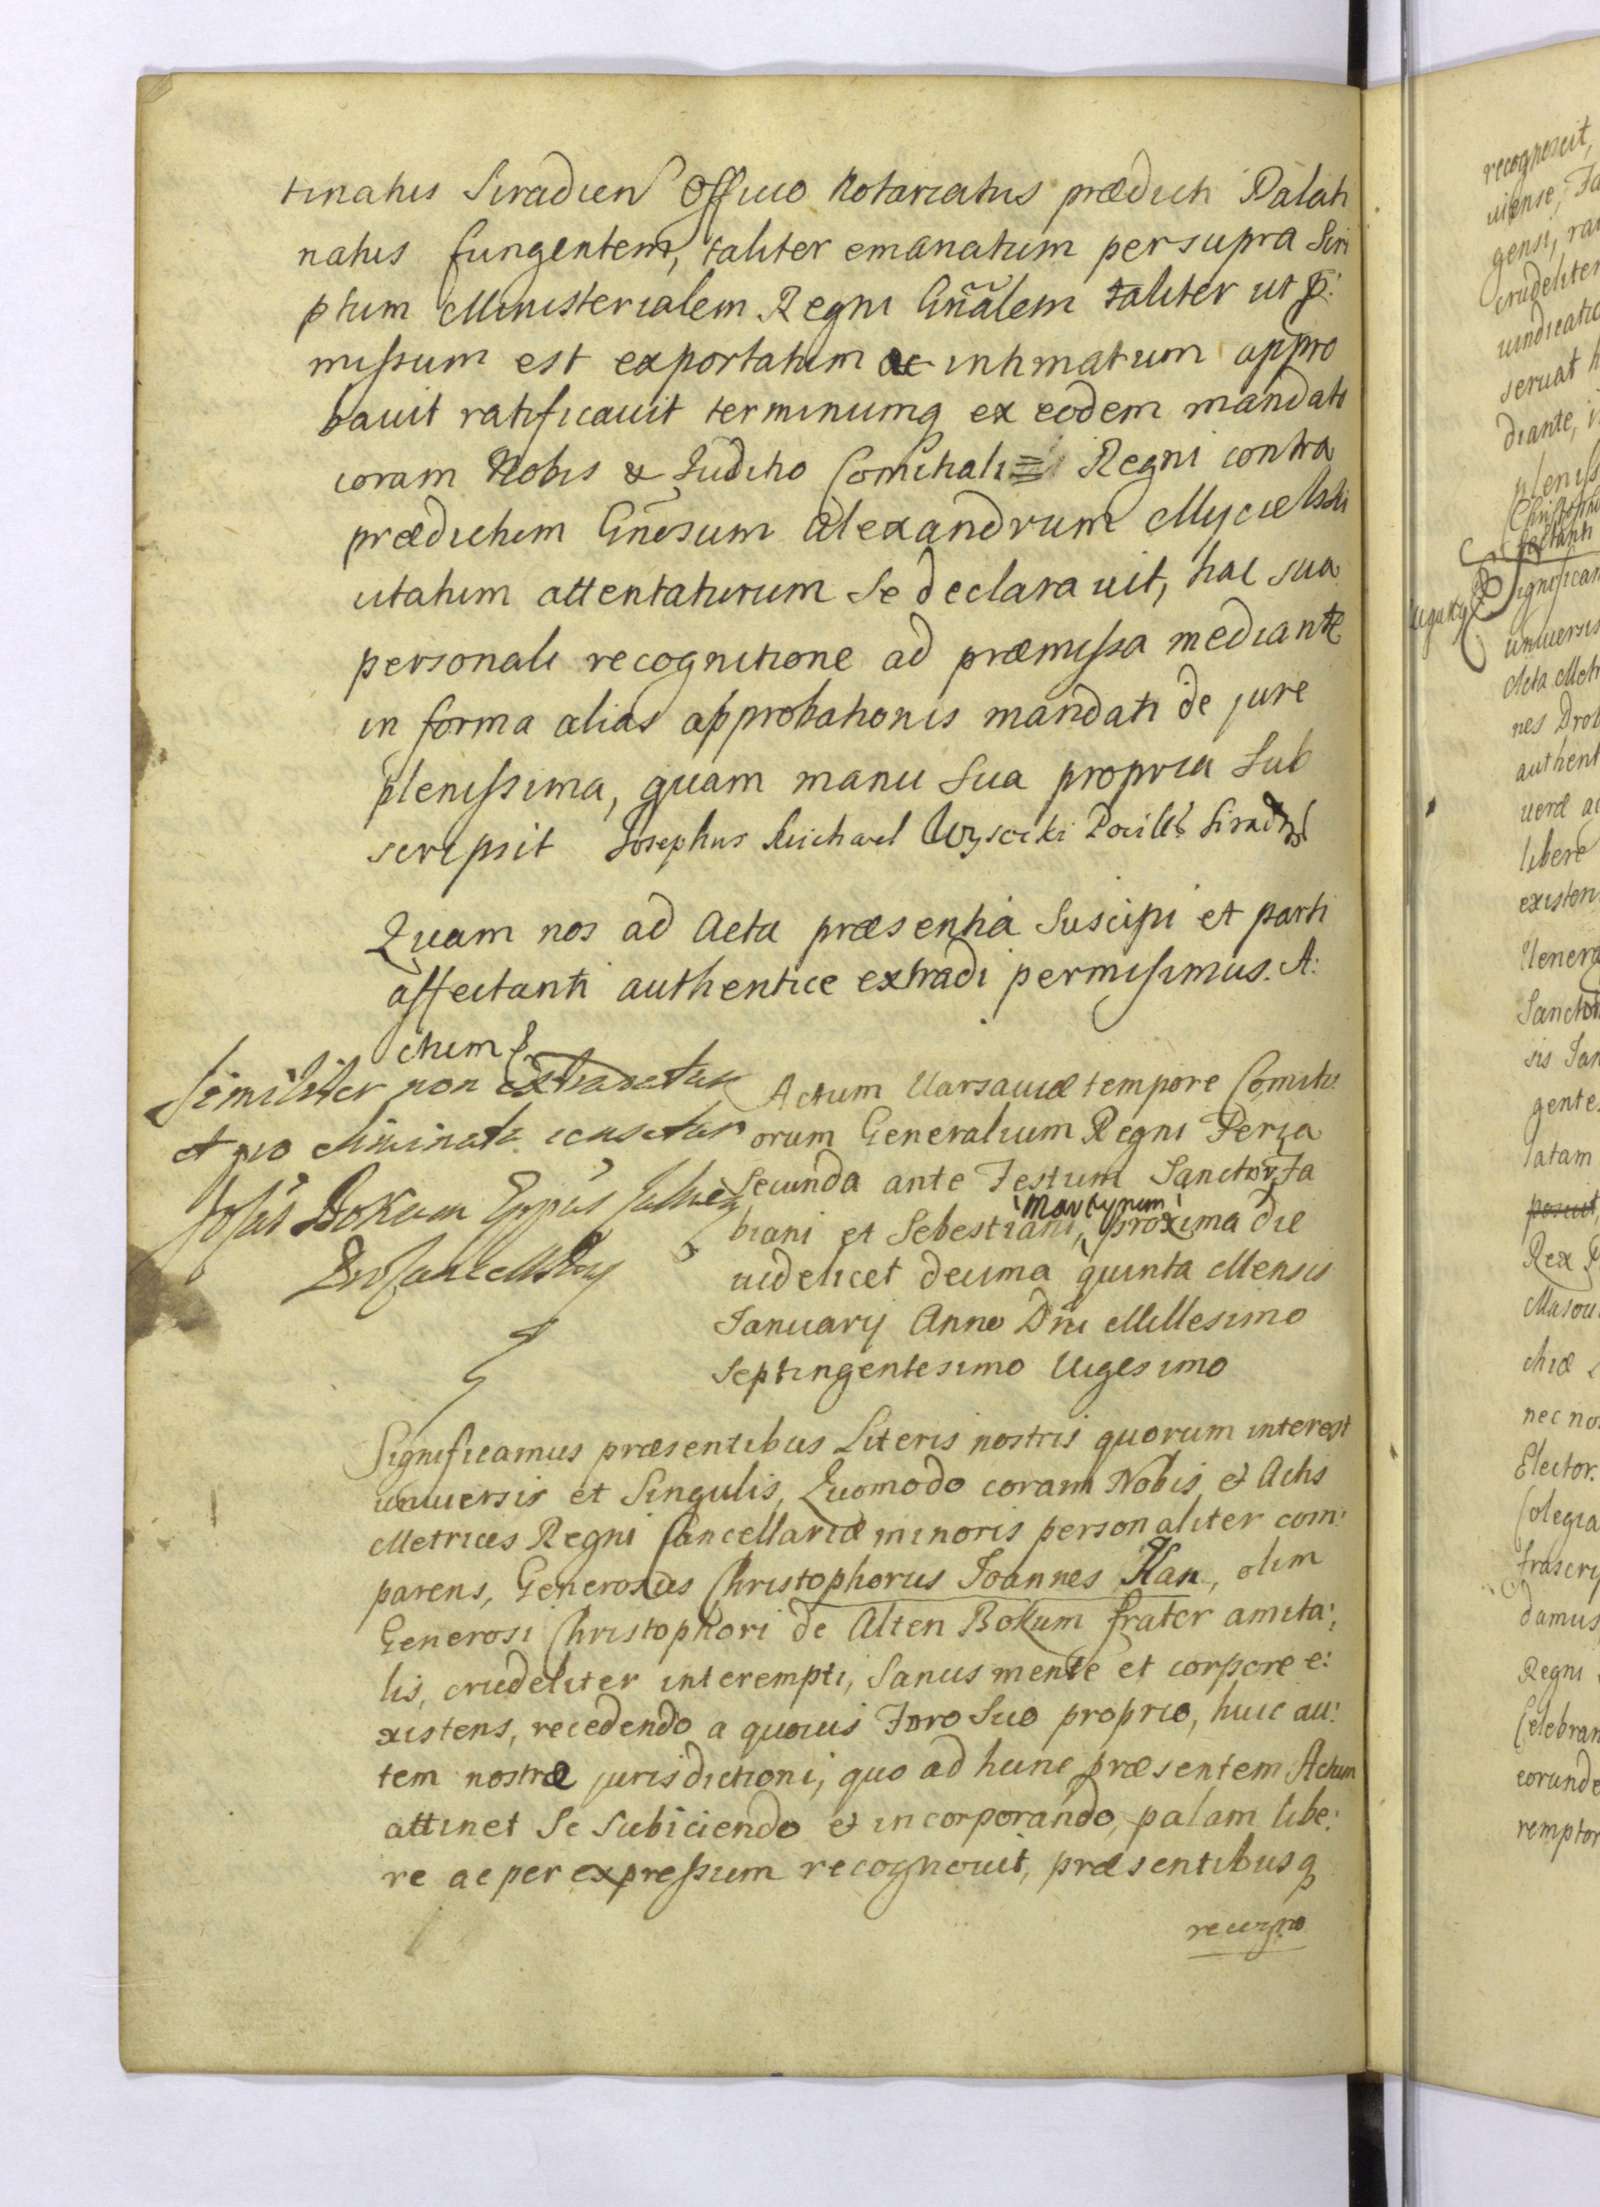 tinatus Siradien Officio Notariatus prædicti Palati
natus fungentem, taliter emanatum per supra Scri
ptum Ministerialem Regni Gñalem taliter ut p:
missum est exportatum ac intimatum appro
bauit ratificauit terminumq ex eodem mandato
coram Nobis & Judicio Comitiali Regni contra
prædictum Gñosum Alexandrum Mycielski
citatum attentaturum se declarauit, hac sua
personali recognitione ad præmissa mediante
in forma alias approbationis mandati de jure
plenissima, quam manu sua propria sub
scripsit Josephus Michael Wysocki
Quam nos ad Acta præsentia Suscipi et parti
affectanti authentice extradi permisimus. A:
ctum
Similiter non extradetur
et pro eliminata censetur
Bokum
Actum Varsauiæ tempore Comiti:
orum Generalium Regni Feria
Secunda ante Festum Sanctor Fa
biani et Sebestiani, Martyrum proxima die
uidelicet decima quinta Mensis
Januarij Anno Dñi Millesimo
Septingentesimo Uigesimo
Significamus præsentibus Literis nostris quorum interest
uniuersis et Singulis, Quomodo coram Nobis, & Actis
Metrices Regni Cancellariæ minoris personaliter com:
parens, Generosus Christophorus Joannes Han, olim
Generosi Christophori de Alten Bokum frater amita:
lis, crudeliter interempti, Sanus mente et corpore e:
xistens, recedendo a quouis Foro Suo proprio, huic au:
tem nostræ jurisdictioni, quo ad hunc præsentem Actum
attinet Se Subiciendo & incorporando, palam libe:
re ac per expressum recognouit, præsentibusq
recogno
recognoscit,
gensi,
crudeliter
uindicatio
seruat
diante,
pleniss
Significam
uniuersis
Acta Metr
nes Drob
authent
libere
existen
Uenera
Sanctor
sis Jan
gente
latam
Rex
Masou
chiæ
nec no
Elector.
Colegia
frascrip
damus,
Regni
Celebran
eorunde
remptor